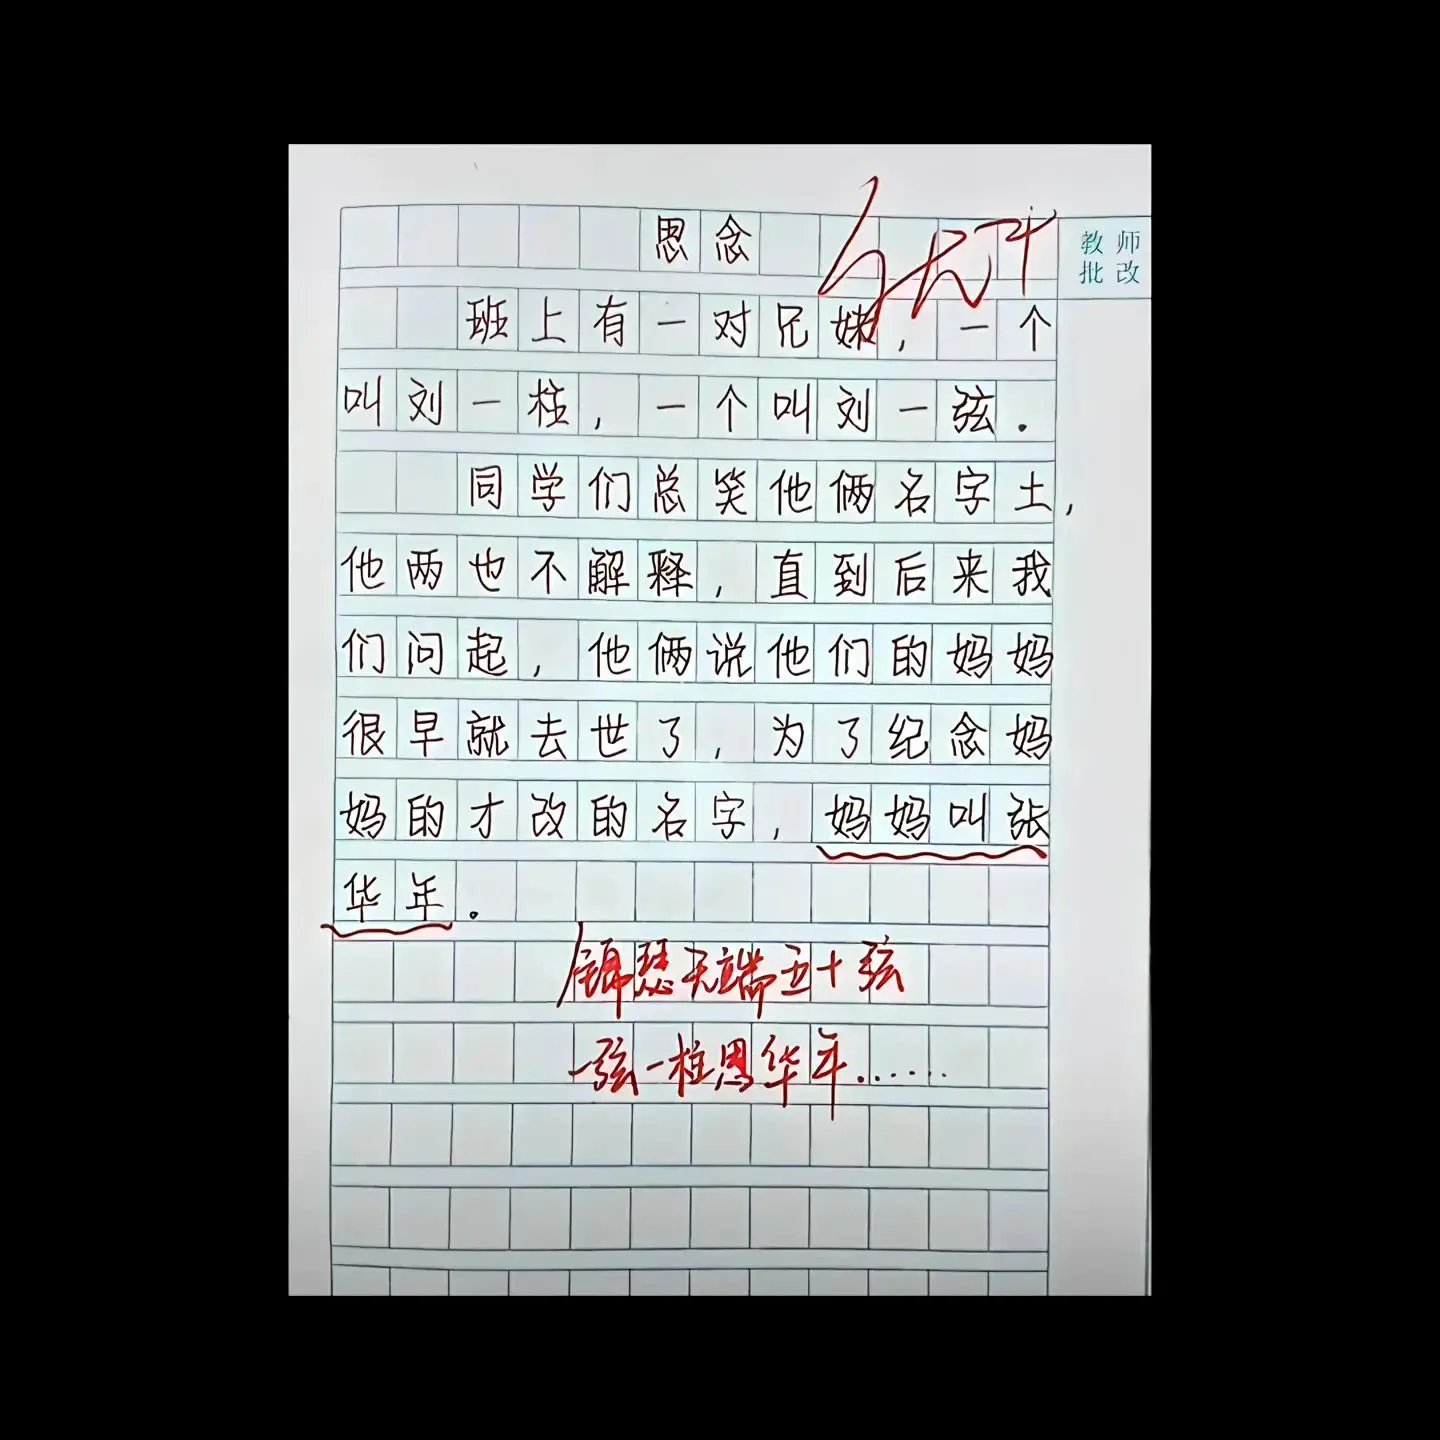 思念
教师
批改
班上有一对兄妹，一个
叫刘一柱，一个叫刘一弦.
同学们总笑他俩名字土，
他两也不解释，直到后来我
们问起，他俩说他们的妈妈
很早就去世了，为了纪念妈
妈的才改的名字，妈妈叫张
华年。
锦瑟无端五十弦
一弦一柱思华年......